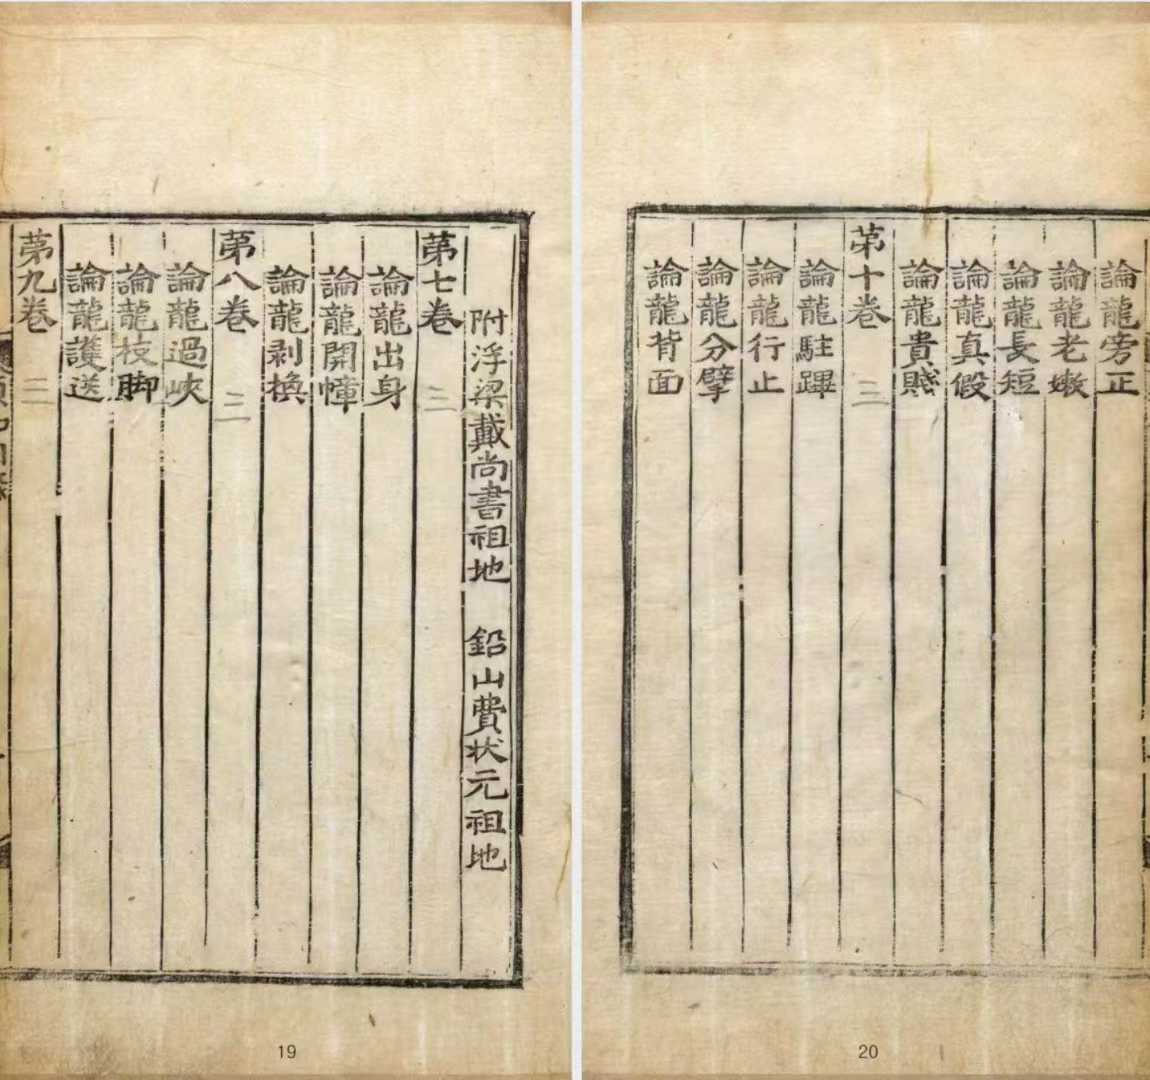 附浮梁戴尚書祖地　鉛山費状元祖地
苐七卷
論龍出身
論龍開幛
論龍剥換
苐八卷
論龍過峽
論龍枝脚
論龍護送
苐九卷
19
論龍旁正
論龍老嫩
論龍長短
論龍真假
論龍貴賤
苐十卷
論龍駐蹕
論龍行止
論龍分擘
論龍背面
20